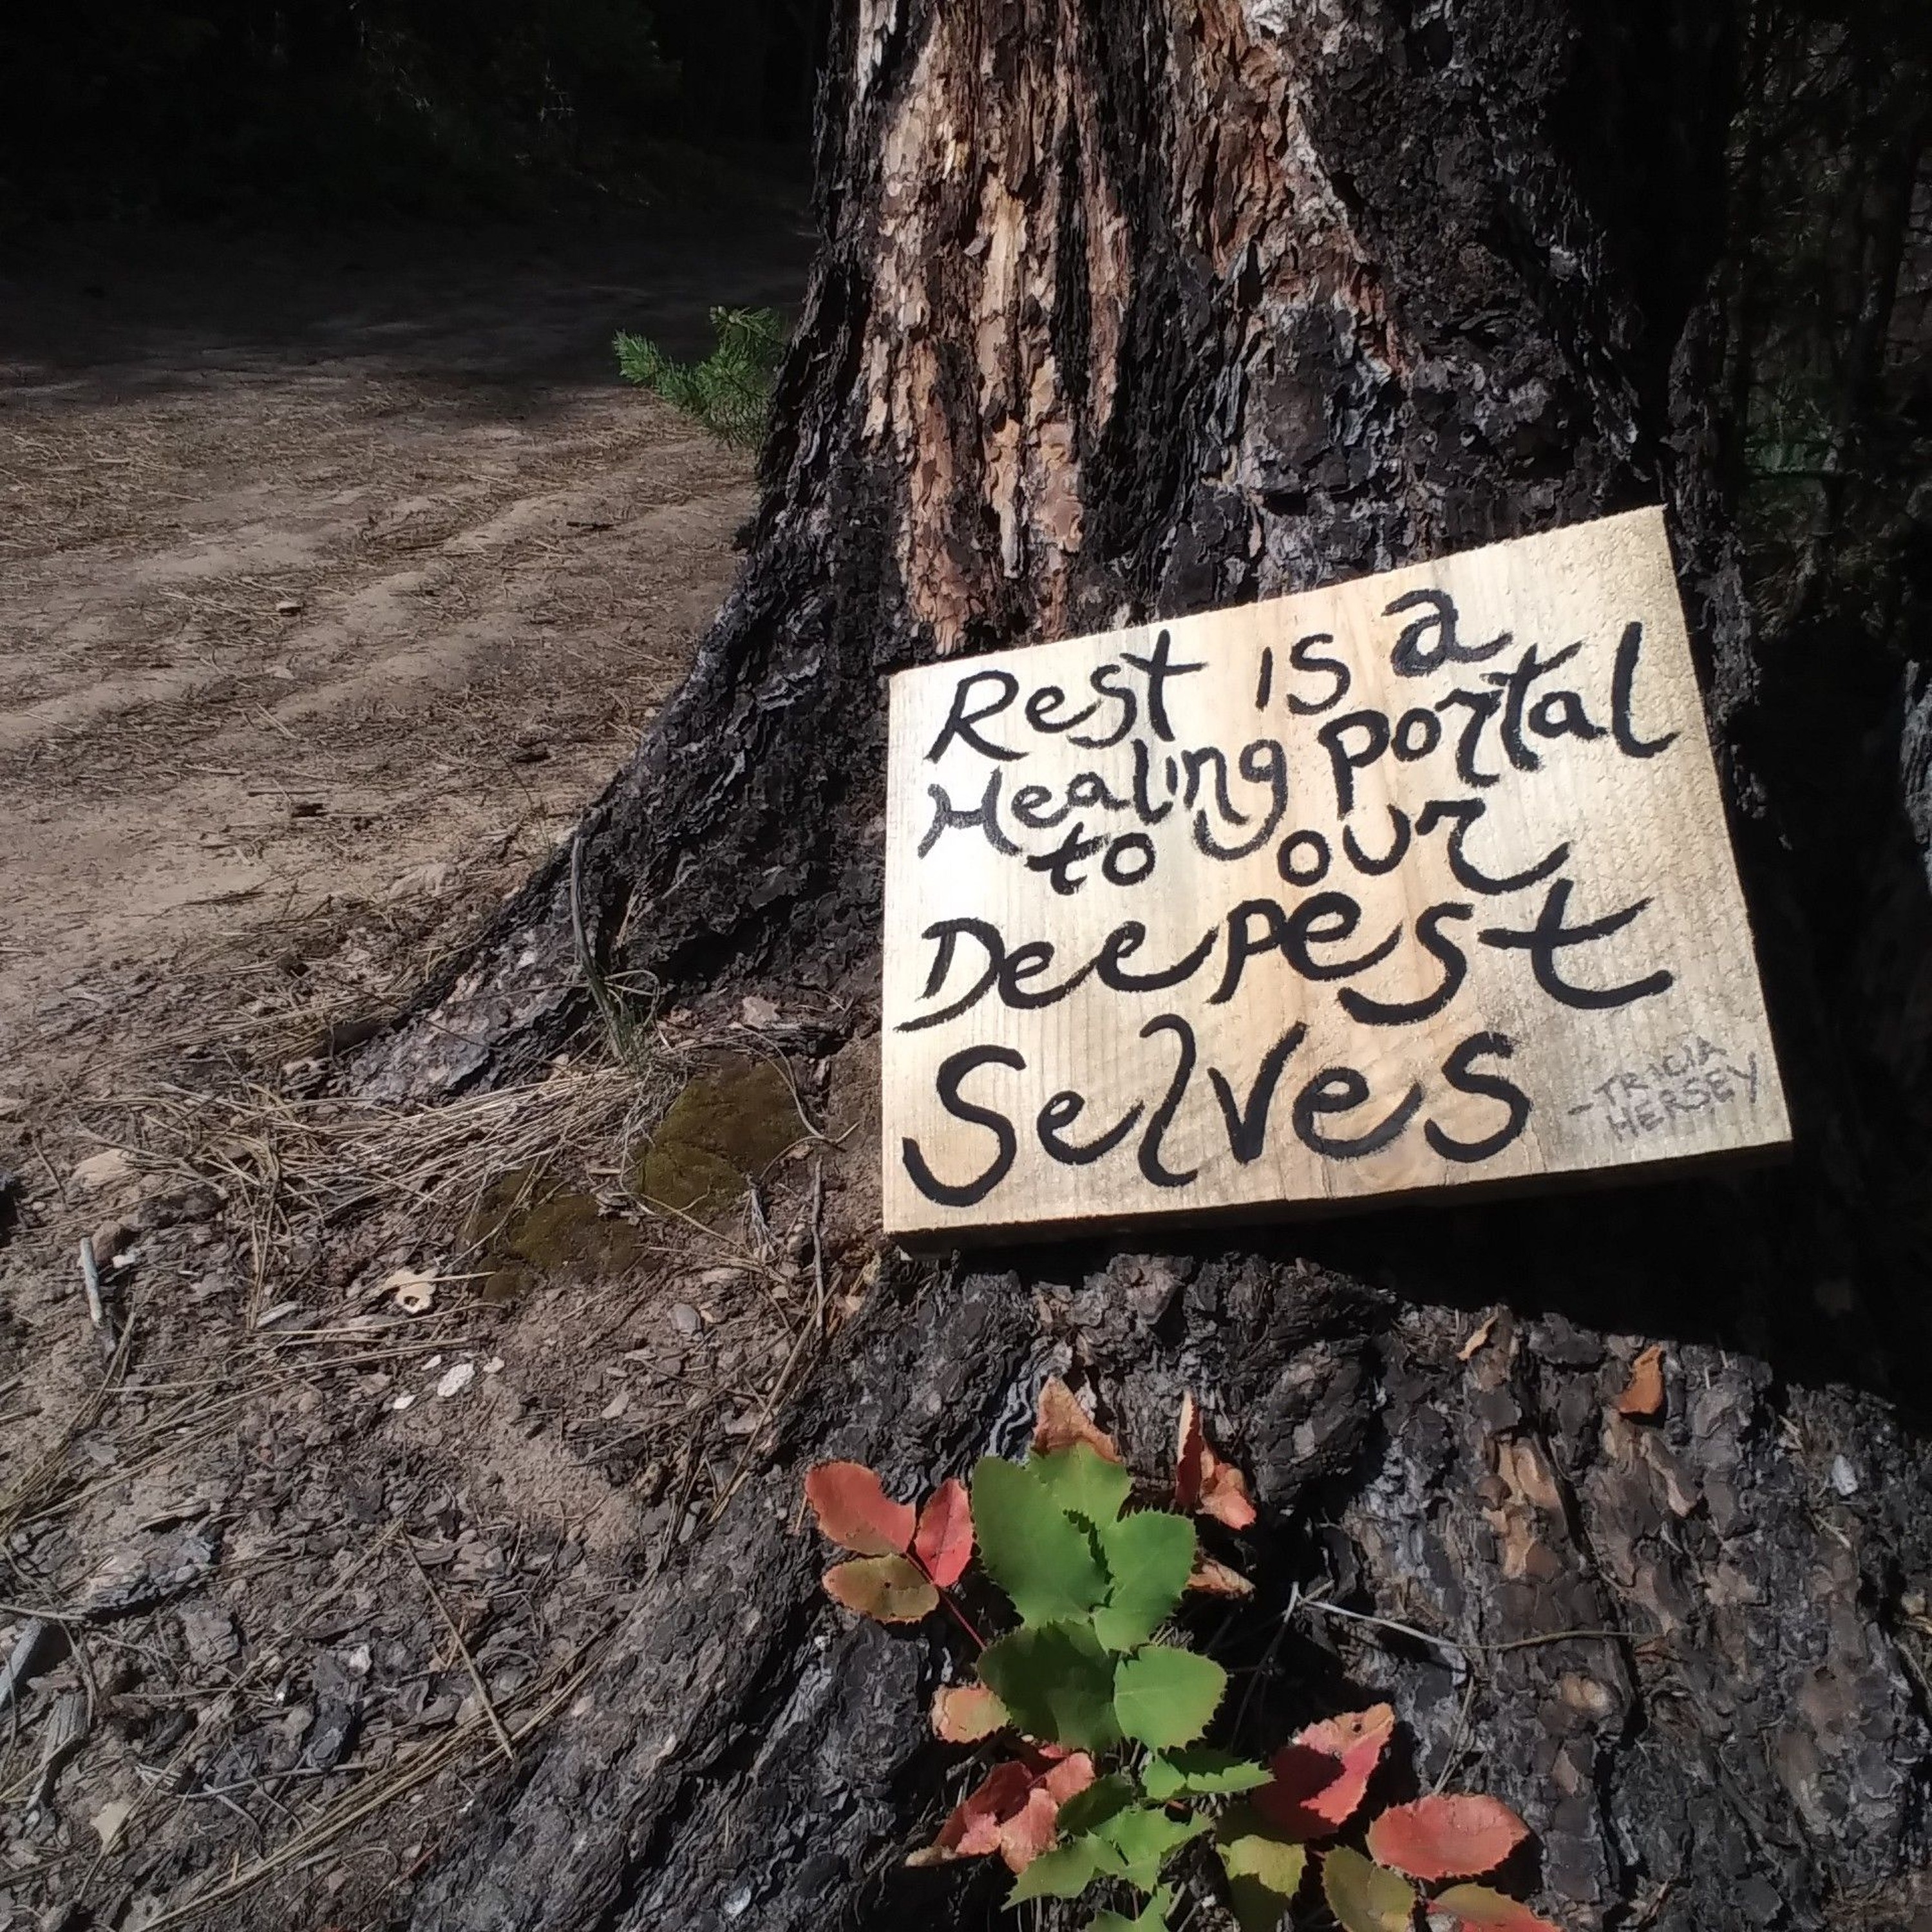 Rest is a
Healing portal
to our
Deepest
Selves
-TRICIA
HERSEY